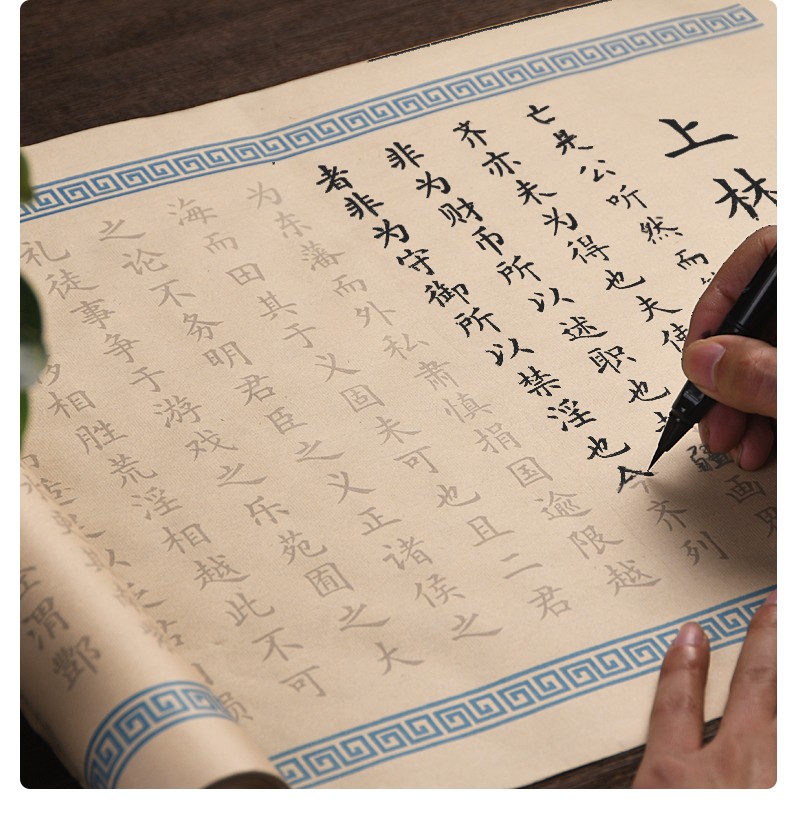 上林
亡是公听然而
齐亦未为得也夫使
非为财币所以述职也封疆画界
者非为守御所以禁淫也今齐列
为东藩而外私肃慎捐国逾限越
海而田其于义固未可也且二君
之论不务明君臣之义正诸侯之
礼徒事争于游戏之乐苑囿之大
侈相胜荒淫相越此不可
损